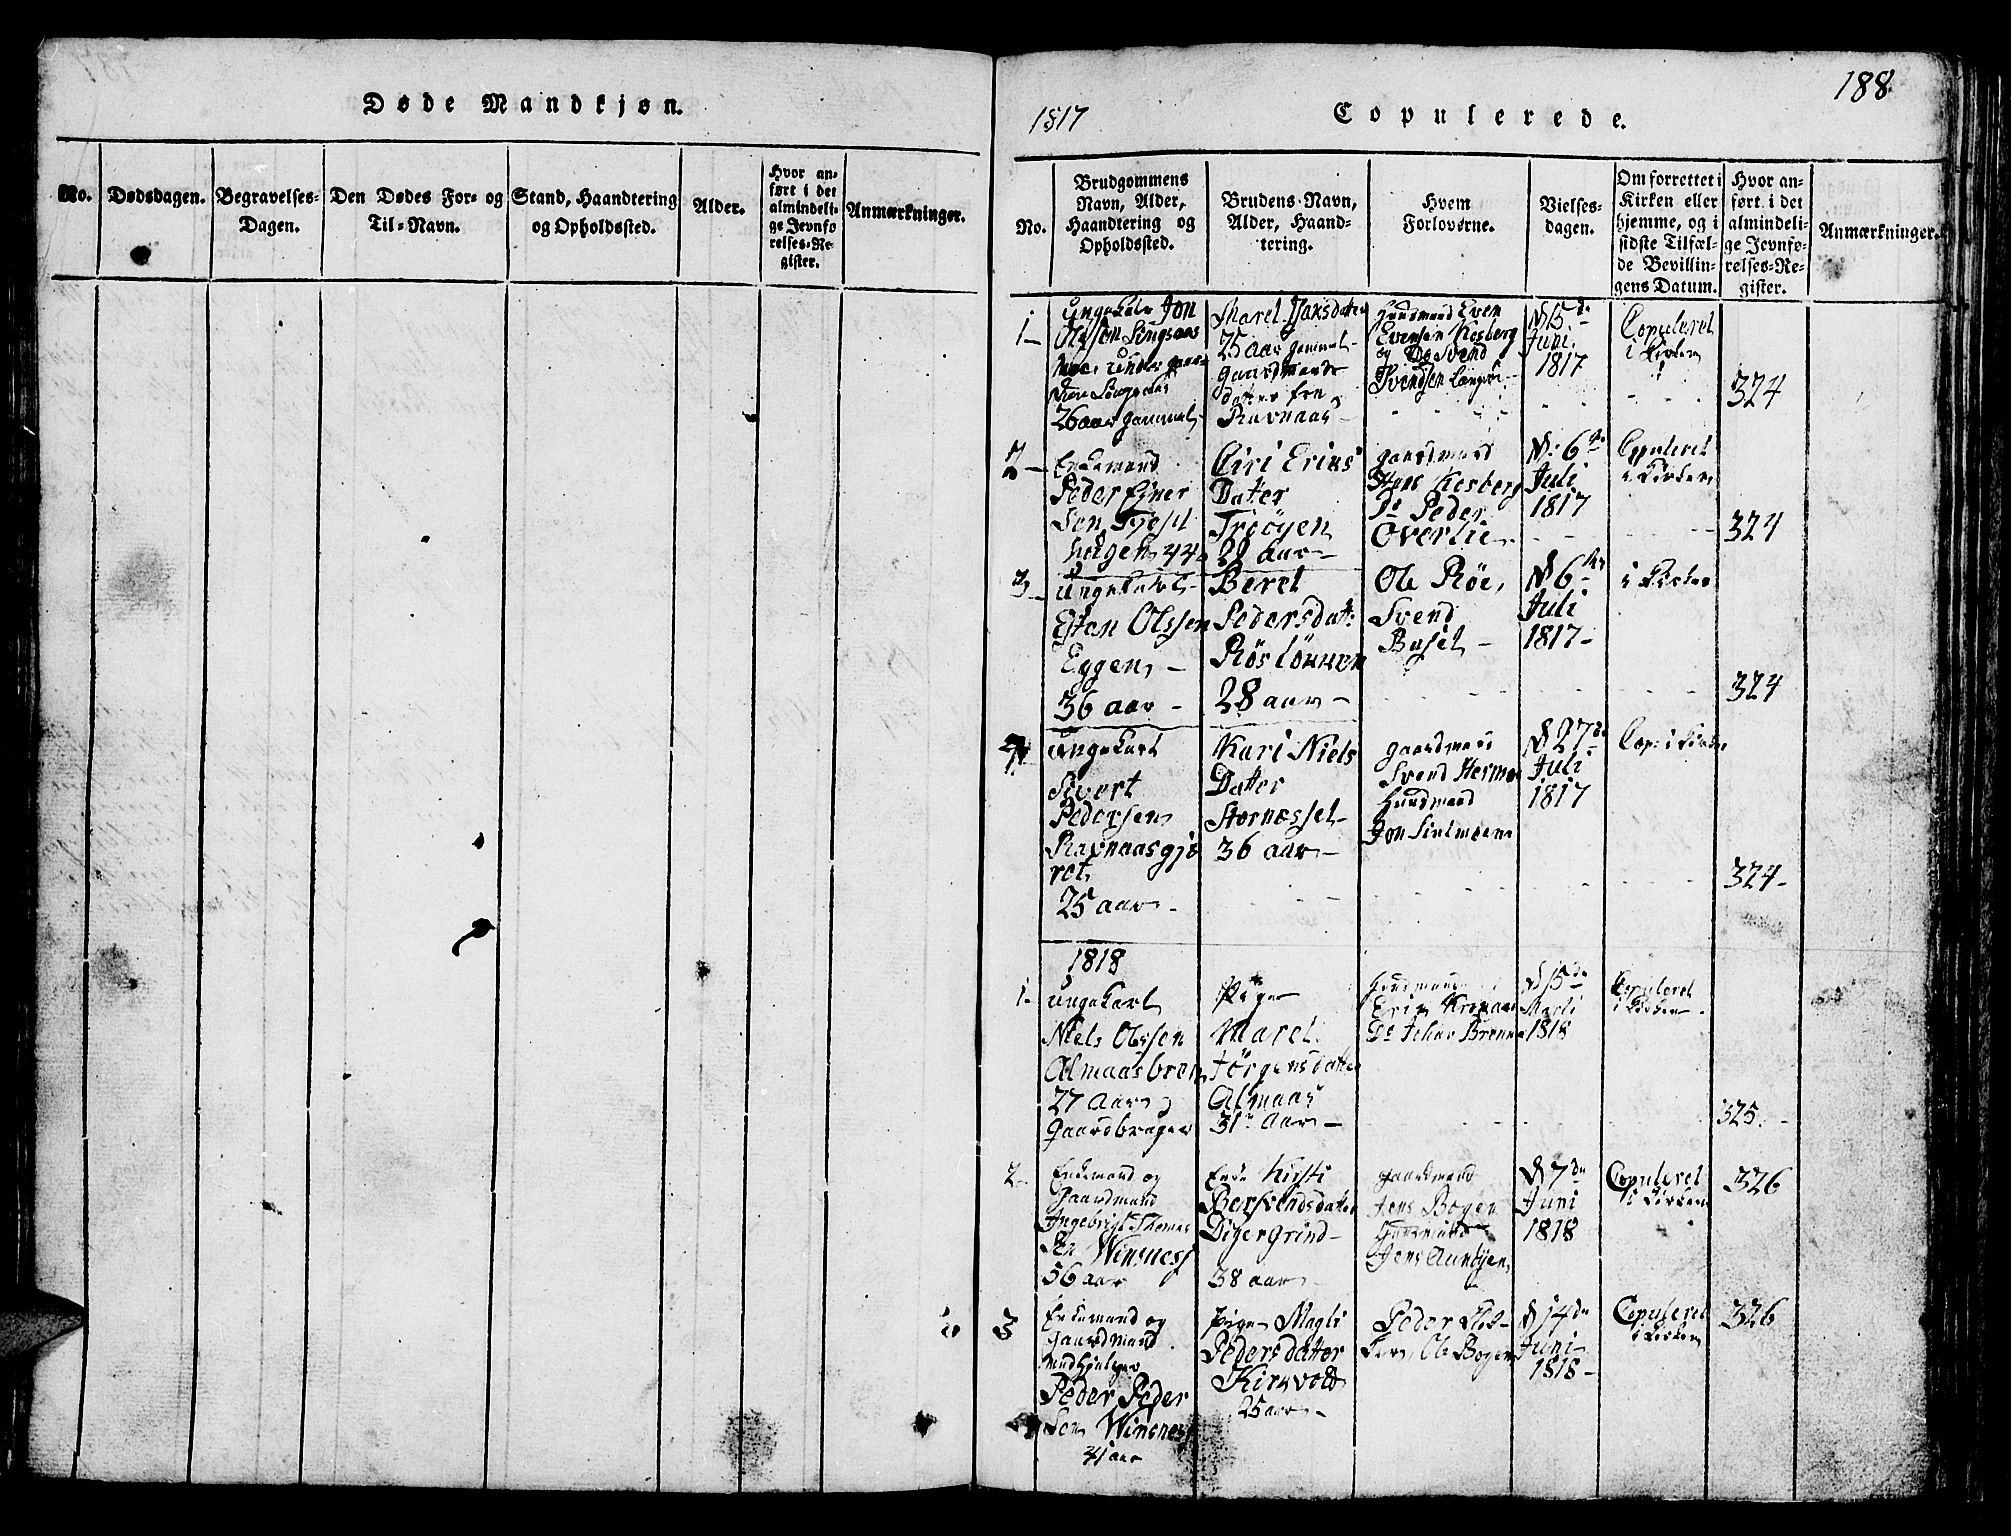 Døde Mandkjøn.
No.
Dødsdagen.
Begravelses-
Dagen.
Den Dødes For- og
Til-Navn.
Stand, Haandtering
og Opholdssted.
Alder.
Hvor an-
ført i det
almindeli-
ge Jevnfø-
relses-Re-
gister.
Anmærkninger.
188
1817
Copulerede.
No.
Brudgommens
Navn, Alder,
Haandtering og
Opholdssted.
Brudens Navn,
Alder, Haand-
tering.
Hvem
Forloverne.
Vielses-
dagen.
Om forrettet i
Kirken eller
hjemme, og i
sidste Tilfæl-
de Bevillin-
gens Datum.
Hvor an-
ført i det
almindeli-
ge Jevnfø-
relses-Re-
gister.
Anmærkninger.
1-
Ungekarl Jon
Olsson Singsaas
26 aar gammel
Marel
25 aar gammel
gaardmands
datter fra
Ravnaas
Huusmand Even
Evensen Kosberg
og Svend
Svendsen
D 15de
Juni
1817
Copuleret
i Kirken
324
2-
Enkemand
Peder Ejner
Sen
haugen 44
Siri Eriks
Datter
Troøyen
29 aar
gaardmand
Hans Kosberg
Do Peder
Overlie
D: 6te
Juli
1817
Copuleret
i Kirken
324
3-
Ungekarl
Esten Olssen
Eggen -
36 aar -
Beret
Pedersdatt:
Røsløkken
28 aar -
Ole Røe,
Svend
Busel -
D 6te
Juli
1817-
i Kirken
324
4
ungekarl
Sivert
Pedersen
Ravnaasgjæ
ret
25 aar -
Kari Niels
Datter
Stornessel-
36 aar -
gaardmand
Svend Hermo
Huusmand
Jon
D 27de
Juli
1817
Cop: i Kirke
324-
1818
1-
ungekarl
Niels Olssen
Almaasbren
27 Aar
Gaardbruger
Pige
Marel
Jørgensdatter
Almaas
31 Aar -
Huusmand
Erik
Do Johan Brenne
D 15de
Marti
1818
Copuleret
i Kirken
325.-
2-
Enkemand og
Gaardmand
Ingebrigt Thomas
Sen Winsnes
56 aar
Enke Kirsti
Bersvendsdatter
Digergrind-
38 aar
gaardmand
Jens Bogen
Jens Aunøyen
D 7de
Juni
1818
Copuleret
i Kirken
326
3
Enkemand og
gaardmand
Peder Peder
Sen Winsnes
41 aar
pigen Magli
Pedersdatter
Kirkvold
25 aar -
Peder
Ole Bogen
D 14de
Juni
1818-
Copuleret
i Kirken
326